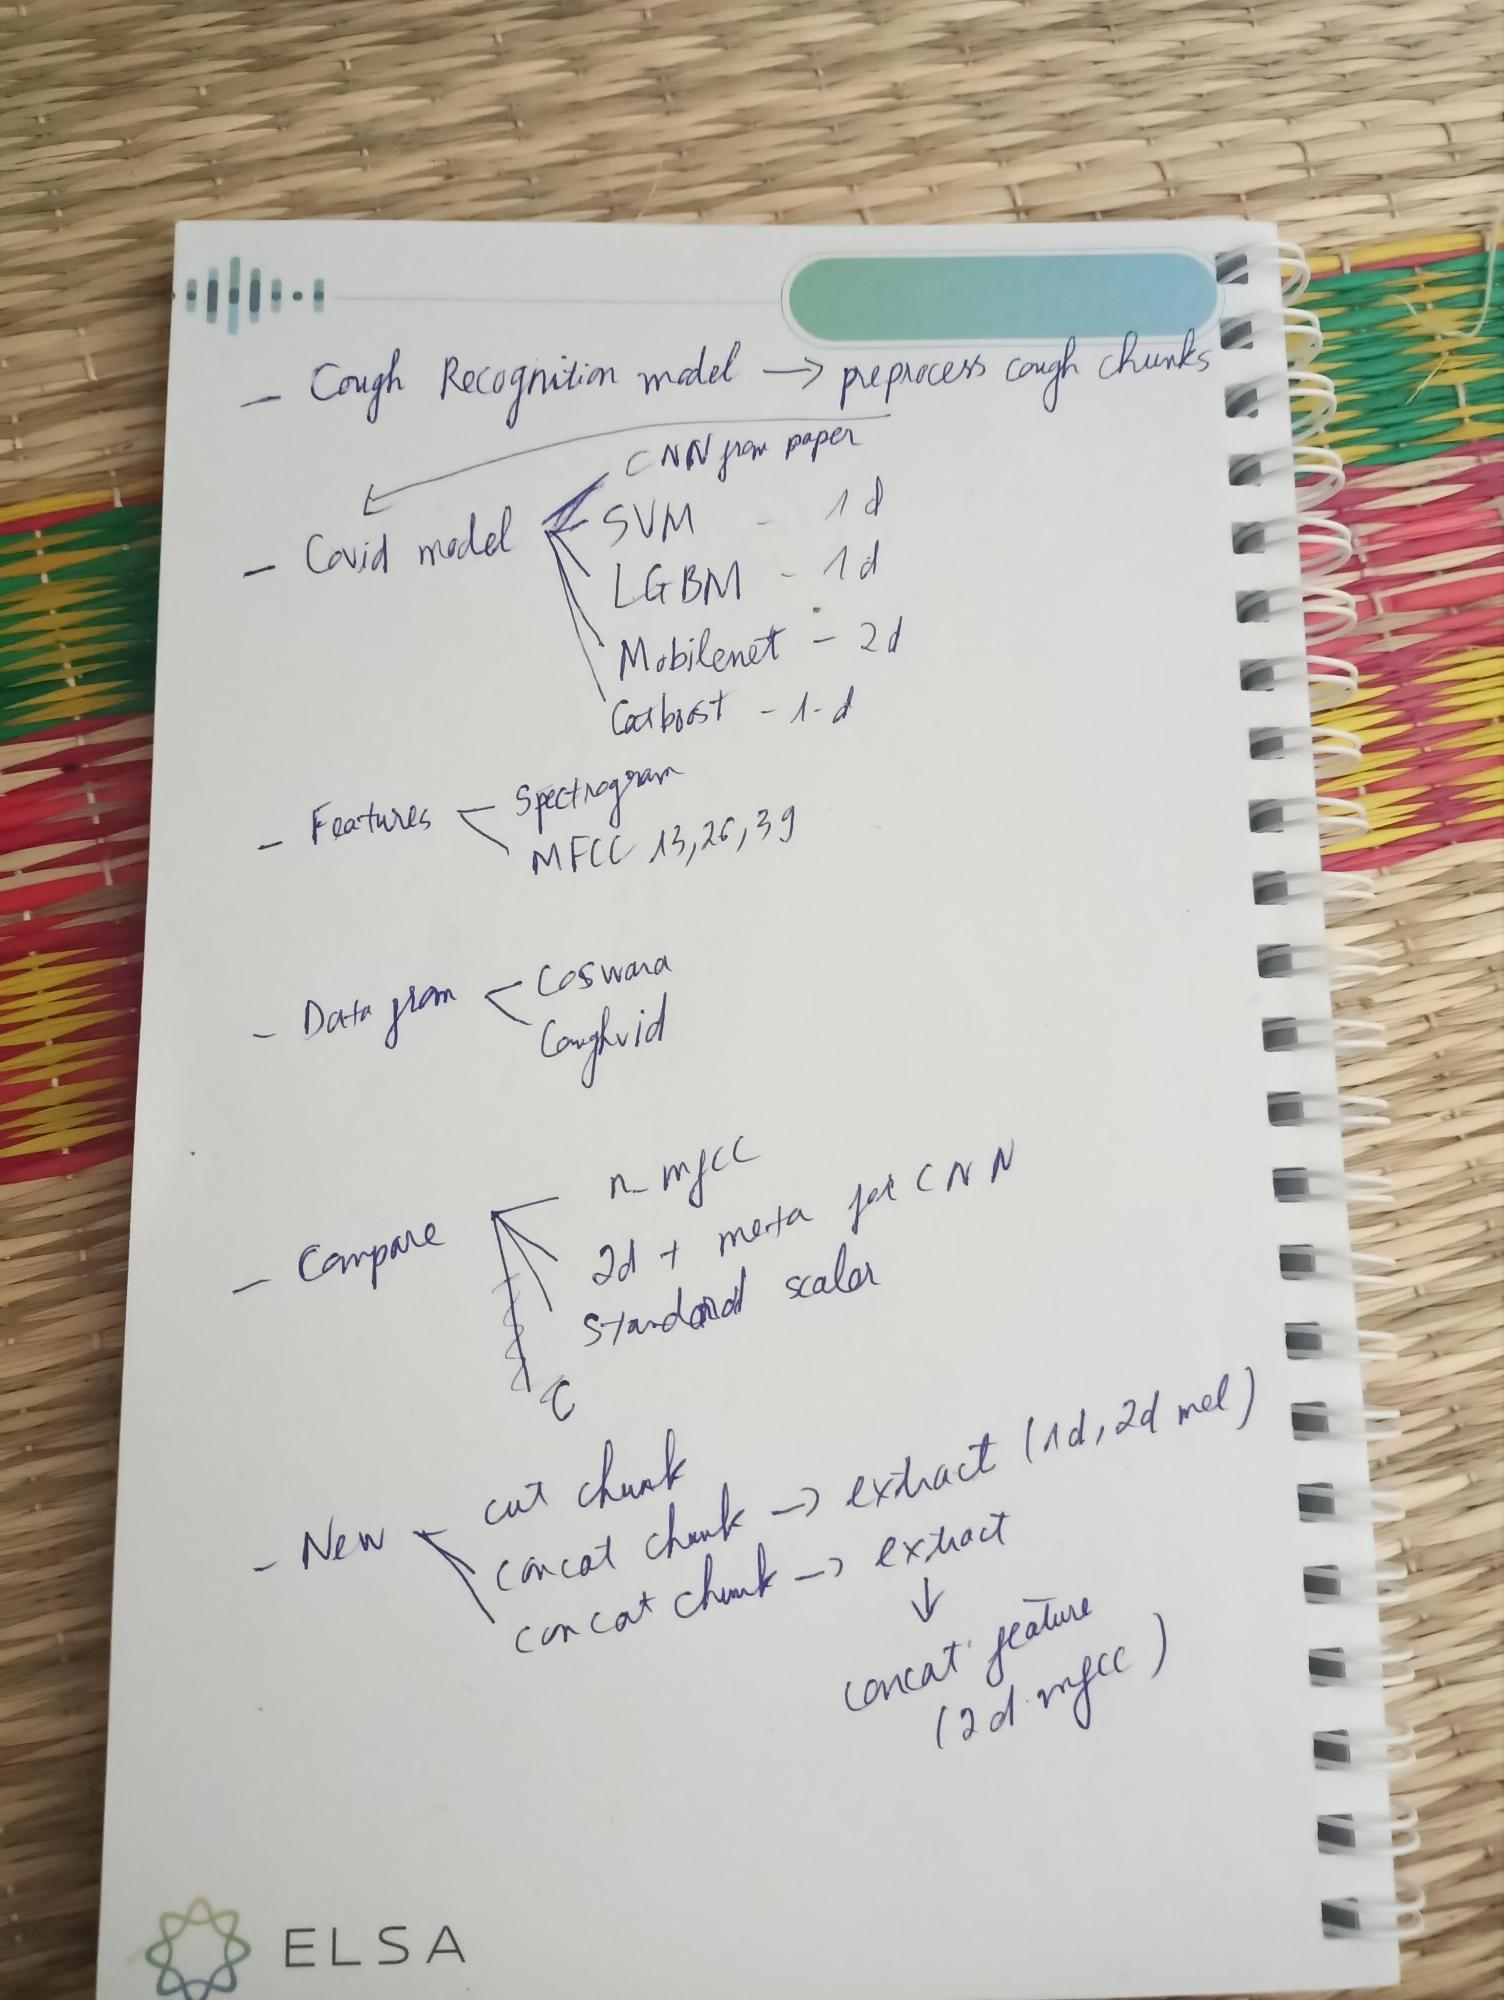 - Cough Recognition model → preprocess cough chunks
- Covid model
CNN from paper
SVM - 1d
LGBM - 1d
Mobilenet - 2d
Catboost - 1-d
- Features
Spectrogram
MFCC 13, 26, 39
- Data from
Coswara
Coughvid
- Compare
n_mfcc
2d + meta for CNN
Standard scalar
C
- New
cut chunk
concat chunk → extract (1d, 2d mel)
concat chunk → extract
↓
concat feature
(2d mfcc)
ELSA